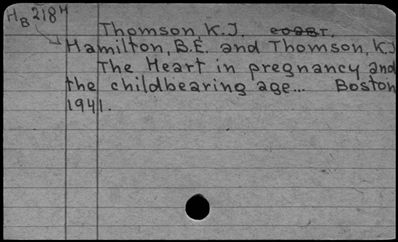 HB 2184
Thomson, K.J.
Hamilton, B.E. and Thomson, K.J
The Heart in pregnancy and
the childbearing age... Boston
1941.